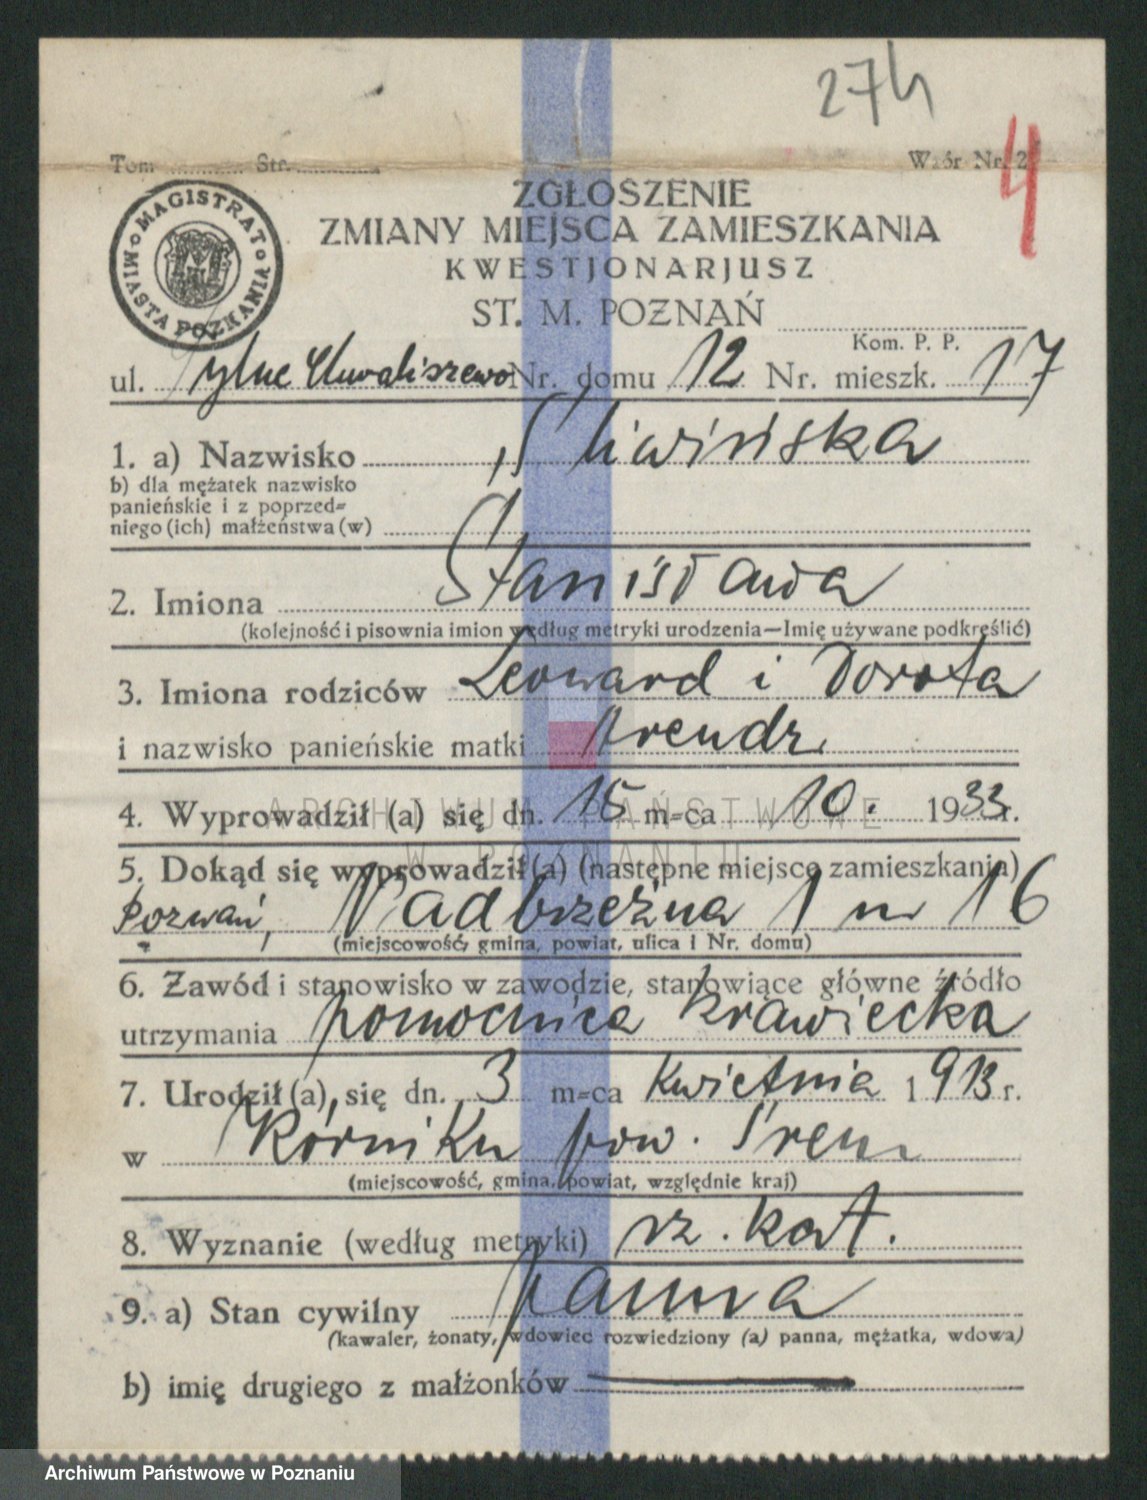 274
Tom ........ Str. ........ Wzór Nr. 2
4
ZGŁOSZENIE
ZMIANY MIEJSCA ZAMIESZKANIA
KWESTJONARJUSZ
MAGISTRAT MIASTA POZNANIA
ST. M. POZNAŃ
Kom. P. P.
ul. Tylne Chwaliszewo Nr. domu 12 Nr. mieszk. 17
1. a) Nazwisko Śliwińska
b) dla mężatek nazwisko
panieńskie i z poprzed=
niego (ich) małżeństwa (w)
2. Imiona Stanisława
(kolejność i pisownia imion według metryki urodzenia—Imię używane podkreślić)
3. Imiona rodziców Leonard i Dorota
i nazwisko panieńskie matki Arendz.
4. Wyprowadził (a) się dn. 15 m=ca 10. 1933 r.
ARCHIWUM PAŃSTWOWE
W POZNANIU
5. Dokąd się wyprowadził (a) (następne miejsce zamieszkania)
Poznań, Nadbrzeżna 1 m 16
(miejscowość, gmina, powiat, ulica i Nr. domu)
6. Zawód i stanowisko w zawodzie, stanowiące główne źródło
utrzymania pomocnica krawiecka
7. Urodził (a) się dn. 3 m=ca kwietnia 1913 r.
w Kórniku pow. Śrem
(miejscowość, gmina, powiat, względnie kraj)
8. Wyznanie (według metryki) rz. kat.
9. a) Stan cywilny panna
(kawaler, żonaty, wdowiec rozwiedziony (a) panna, mężatka, wdowa)
b) imię drugiego z małżonków
Archiwum Państwowe w Poznaniu